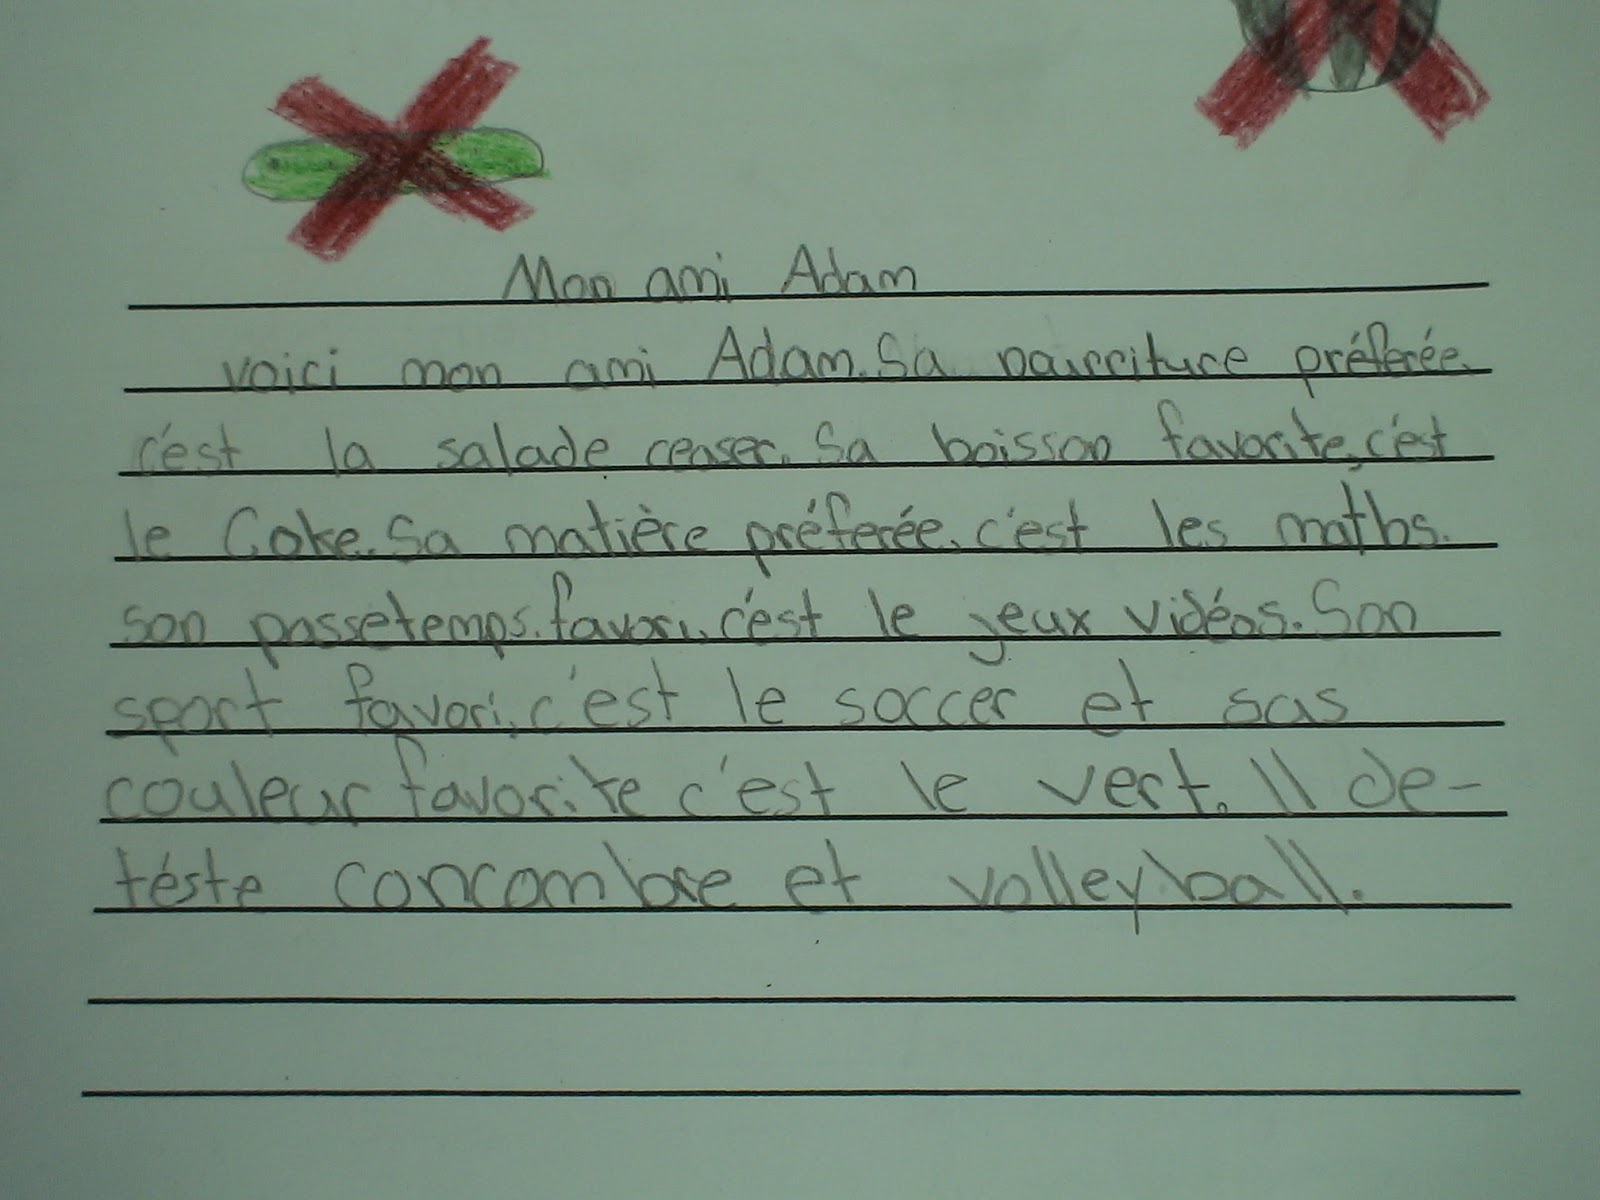 Mon ami Adam
voici mon ami Adam. Sa nourriture préferée
c'est la salade ceaser. Sa boisson favorite, c'est
le Coke. Sa matière préferée, c'est les maths.
son passetemps favori, c'est le jeux vidéos. Son
sport favori, c'est le soccer et sas
couleur favorite c'est le vert. Il de-
téste concombre et volleyball.